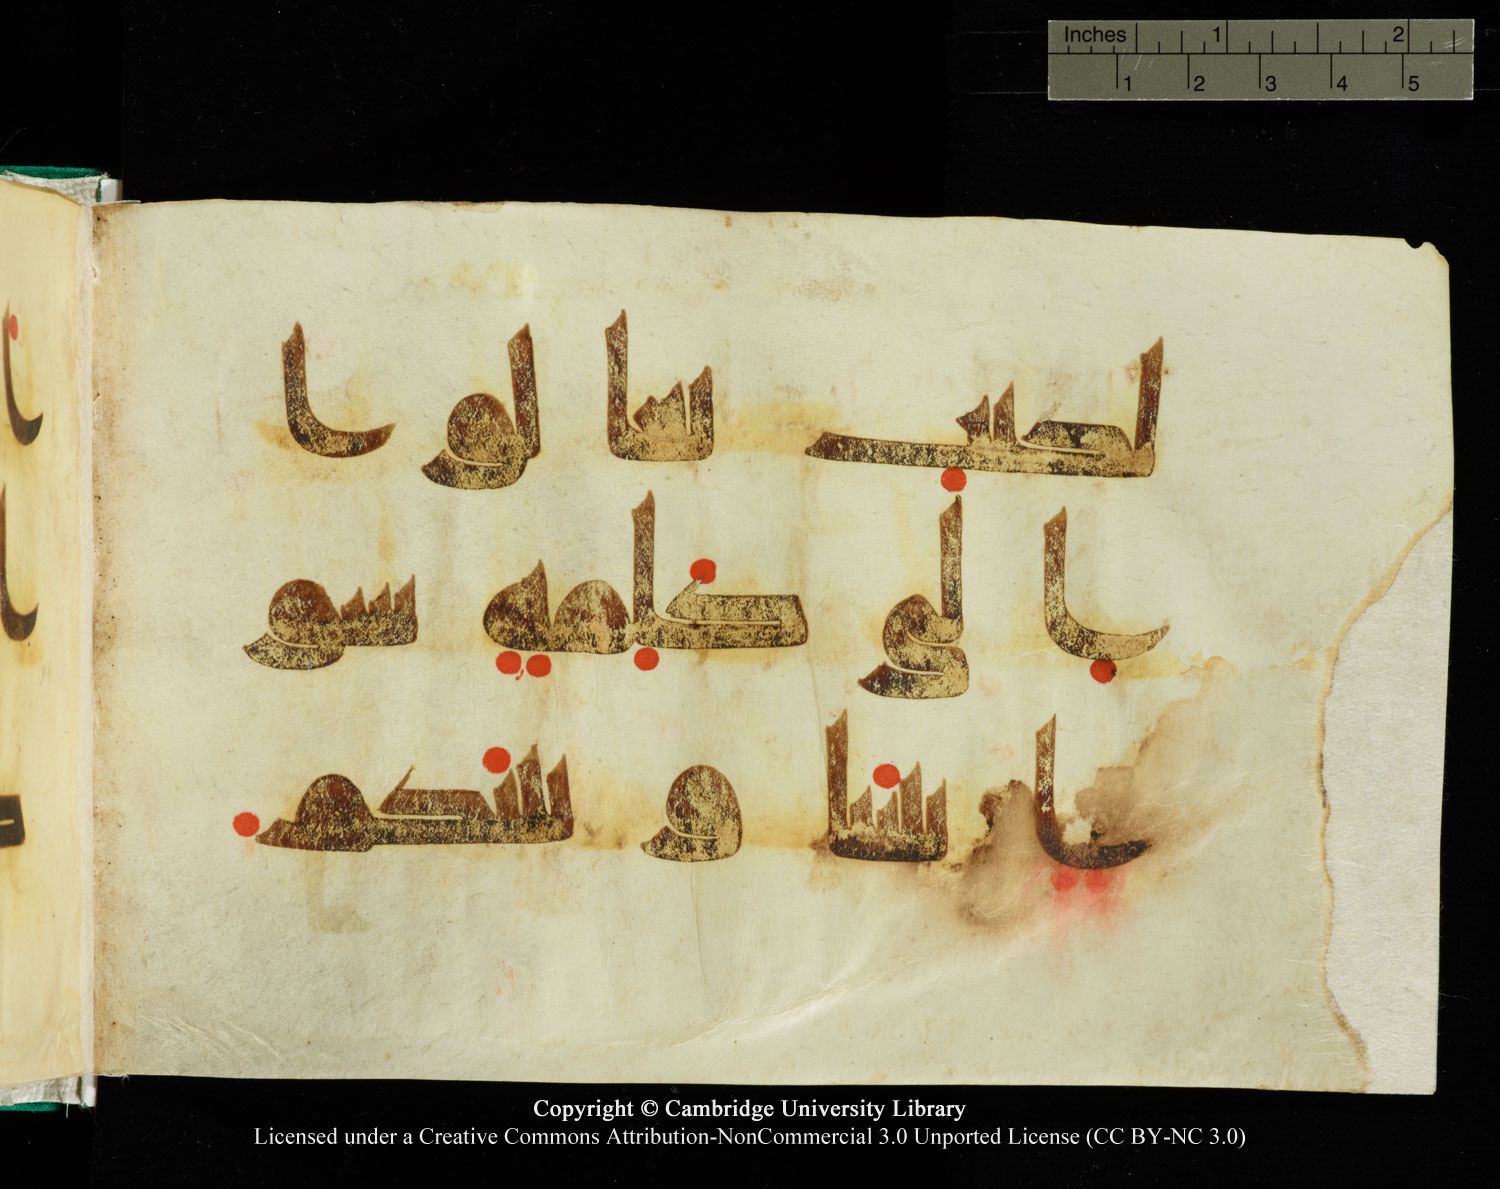 Inches 1 2
1 2 3 4 5
لكتب تعالوا
الى كلمة سو
ا بيننا وبينكم
Copyright © Cambridge University Library
Licensed under a Creative Commons Attribution-NonCommercial 3.0 Unported License (CC BY-NC 3.0)